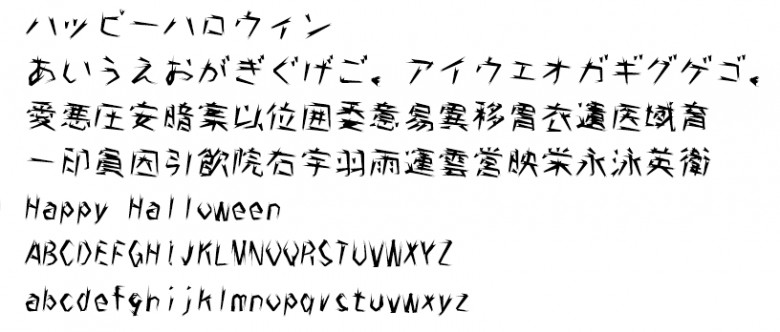 ハッピーハロウィン
あいうえおがぎぐげご。アイウエオガギグゲゴ。
愛悪圧安暗案以位囲委意易異移胃衣遺医域育
一印員因引飲院右宇羽雨運雲営映栄永泳英衛
Happy Halloween
ABCDEFGHiJKLMNOQRSTUVWXYZ
abcdefghijklmnopqrstuvwxyz